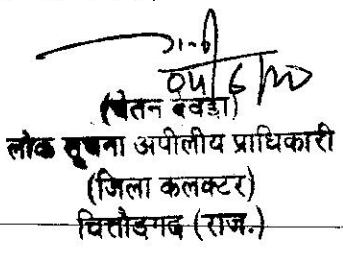 04/6/20
(चेतन देवड़ा)
लोक सूचना अपीलीय प्राधिकारी
(जिला कलक्टर)
चित्तौडगढ (राज.)